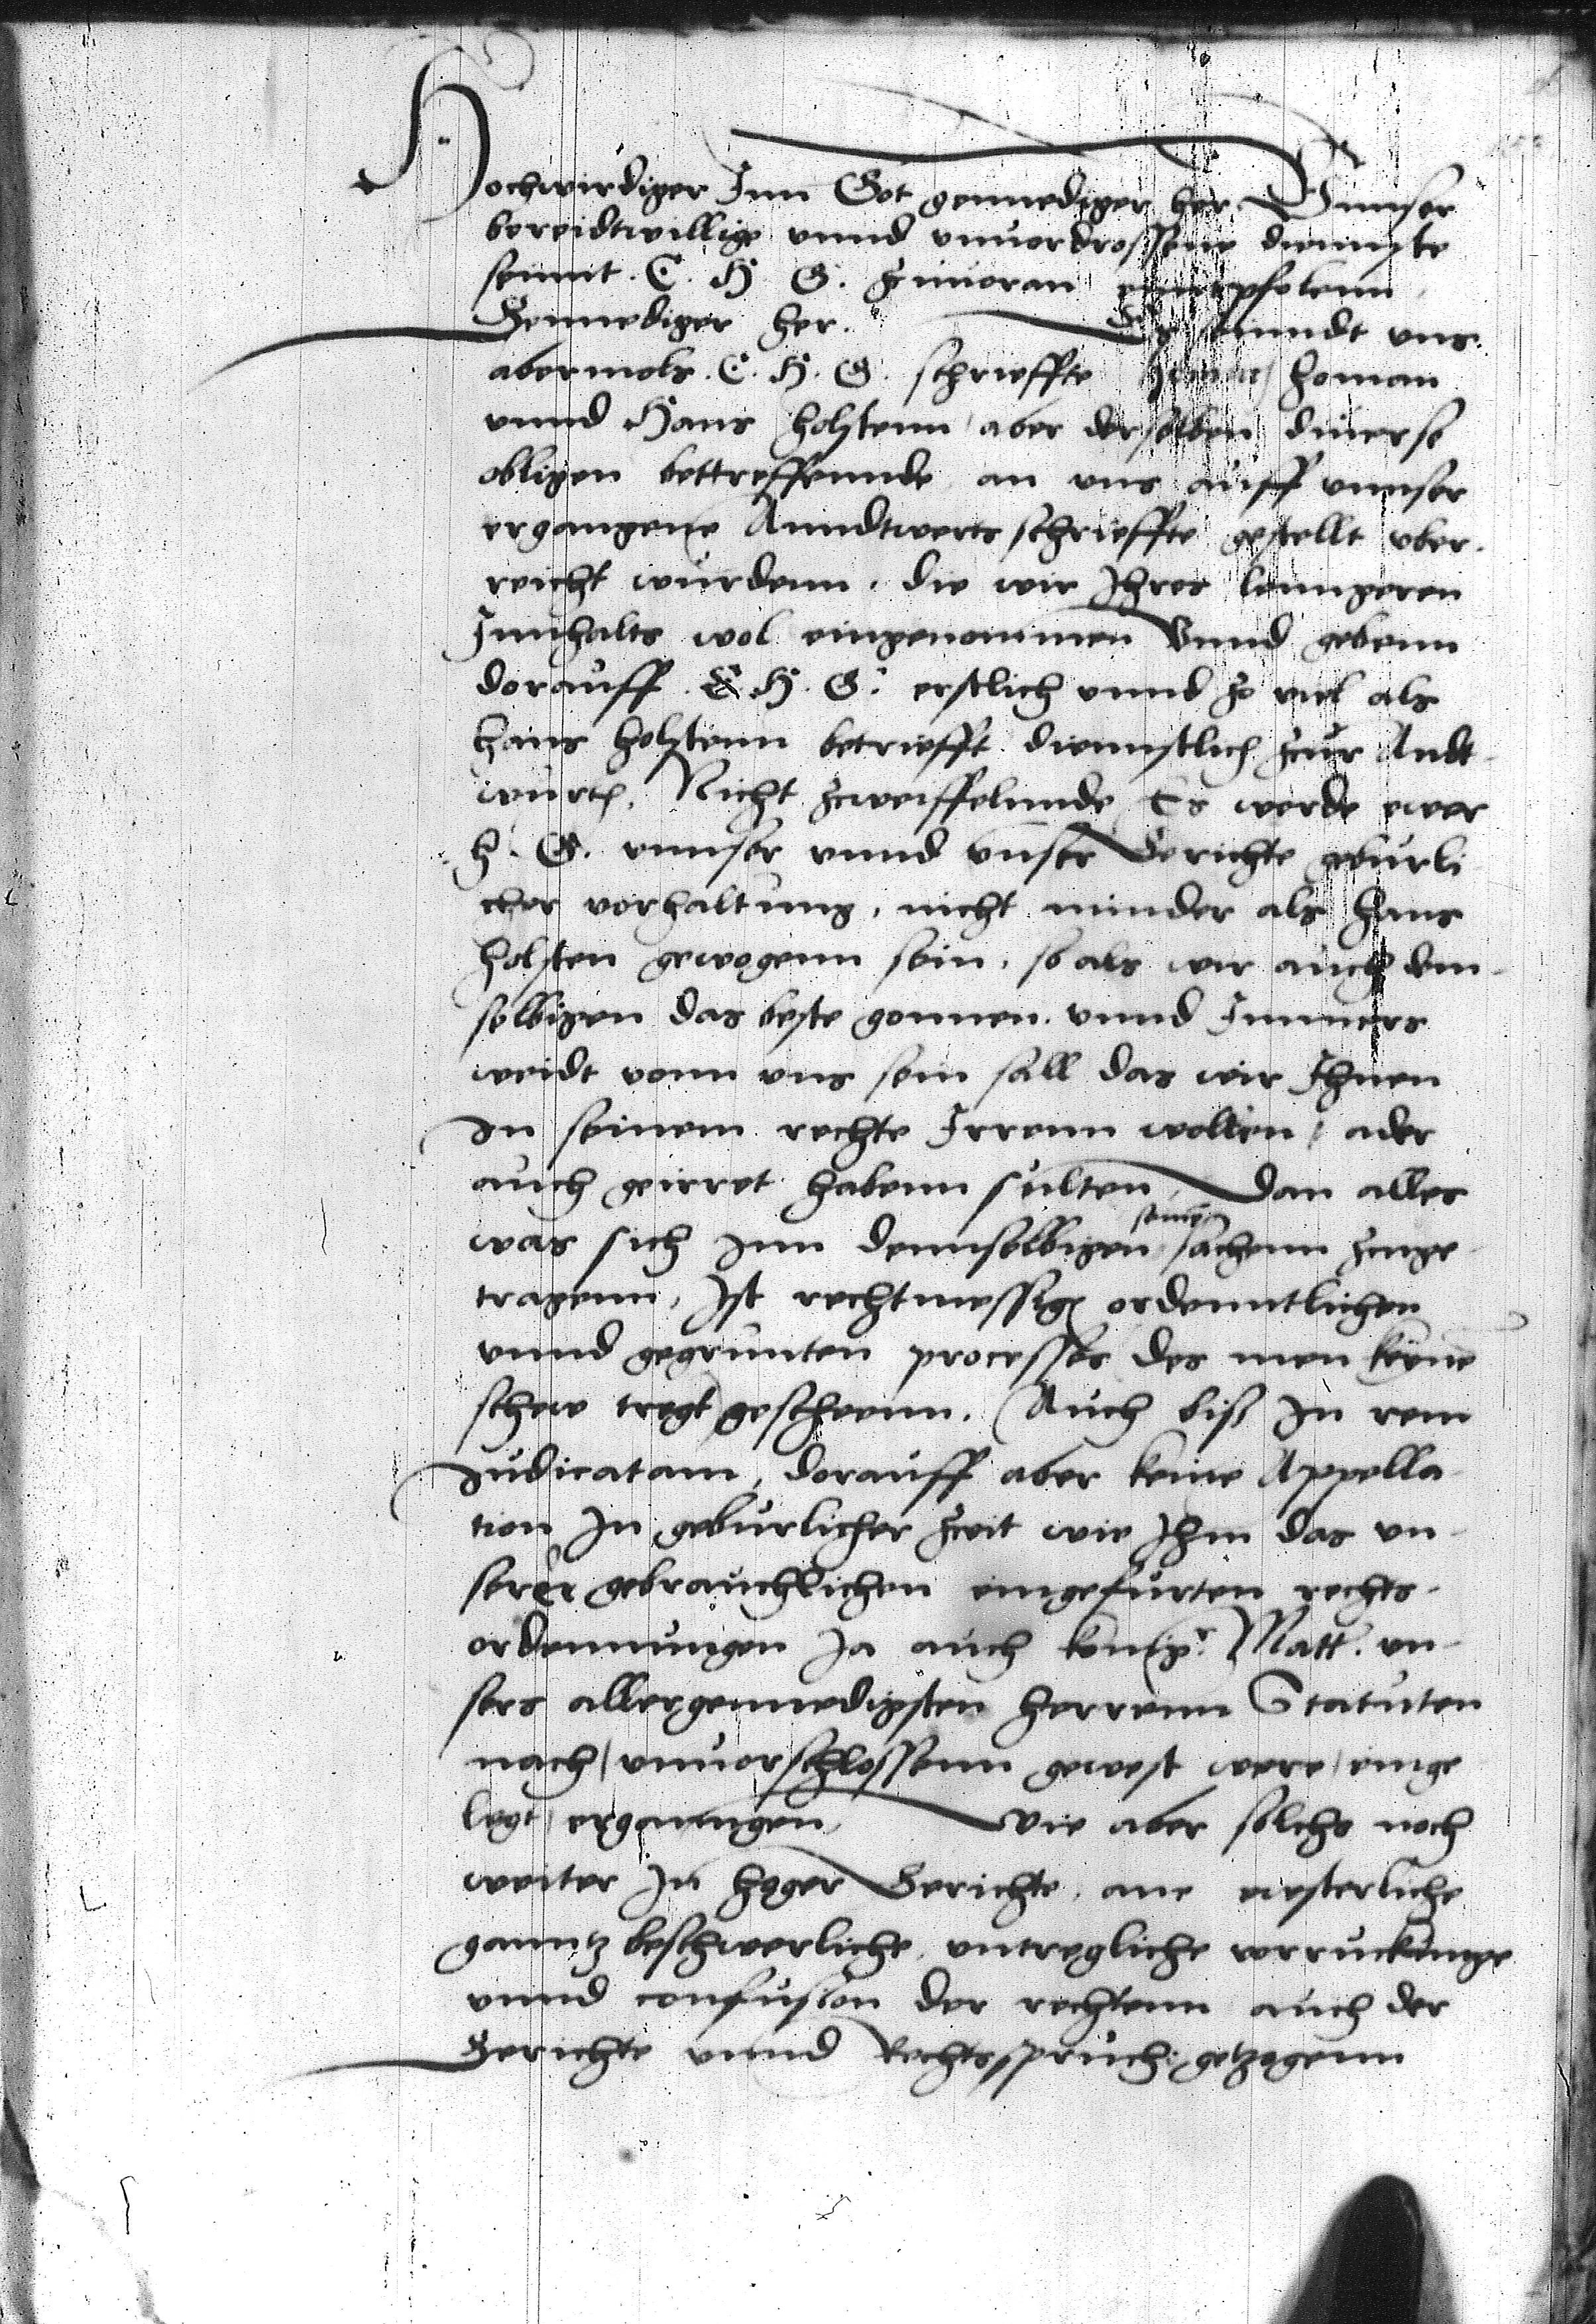 Hochwirdiger Inn Got gennediger her. Vnnser
bereidtwillige vnnd vnuordrossene diennste
sennt. E. H. G. zuuoran empfolenn
Gennediger her. Es sinndt vns
abermols. E. H. G. schrieffte homan
vnnd Hans holstenn aber derselben diuerse
obligen bettreffennde an vns auff vnnser
ergangene Anndtwerts schrieffte gestellt vber-
reicht wurdenn. die wir Ihres lenngeren
Innhalts wol eingenommen Vnnd gebenn
dorauff. E. H. G. erstlich vnnd so viel als
Hans holstenn betriefft diennstlich zur Andt-
wurth, Nicht zweiffelnnde Es werde ewer
H. G. vnnser vnnd vnser Gerichte geburli-
cher vorhaltung, nicht minder als Hans
Holsten gewogenn sein. so als wir auch dem-
selbigen das beste gonnen. vnnd Immers
weidt vonn vns sein sall das wir Ihnen
In seinem rechte Irrenn wollen, ader
auch geirret habenn sulten, Dan alles
was sich Inn dennselbigen seinen sachenn zuge-
tragenn, Ist rechtmessigs ordenntlichen
vnnd gegrunten processes des men keine
schew tregt gescheenn. Auch biß In rem
Iudicatam, dorauff aber keine Appella-
tion In geburlicher zeit wie Ihm das vn-
serer gebrauchlichen eingefurten rechts-
ordennungen Ja auch konigr. Matt. vn-
sers allergennedigsten herrenn Statuten
nach, vnuorschlossenn gewest were, einge-
legt ergangen, Wie aber solchs noch
weiter In hoger Gerichte, ane
ganntz beschwerliche, vntregliche vorruckunge
vnnd confusion der rechtenn auch der
Gerichte vnnd Rechtsspruch getzogenn